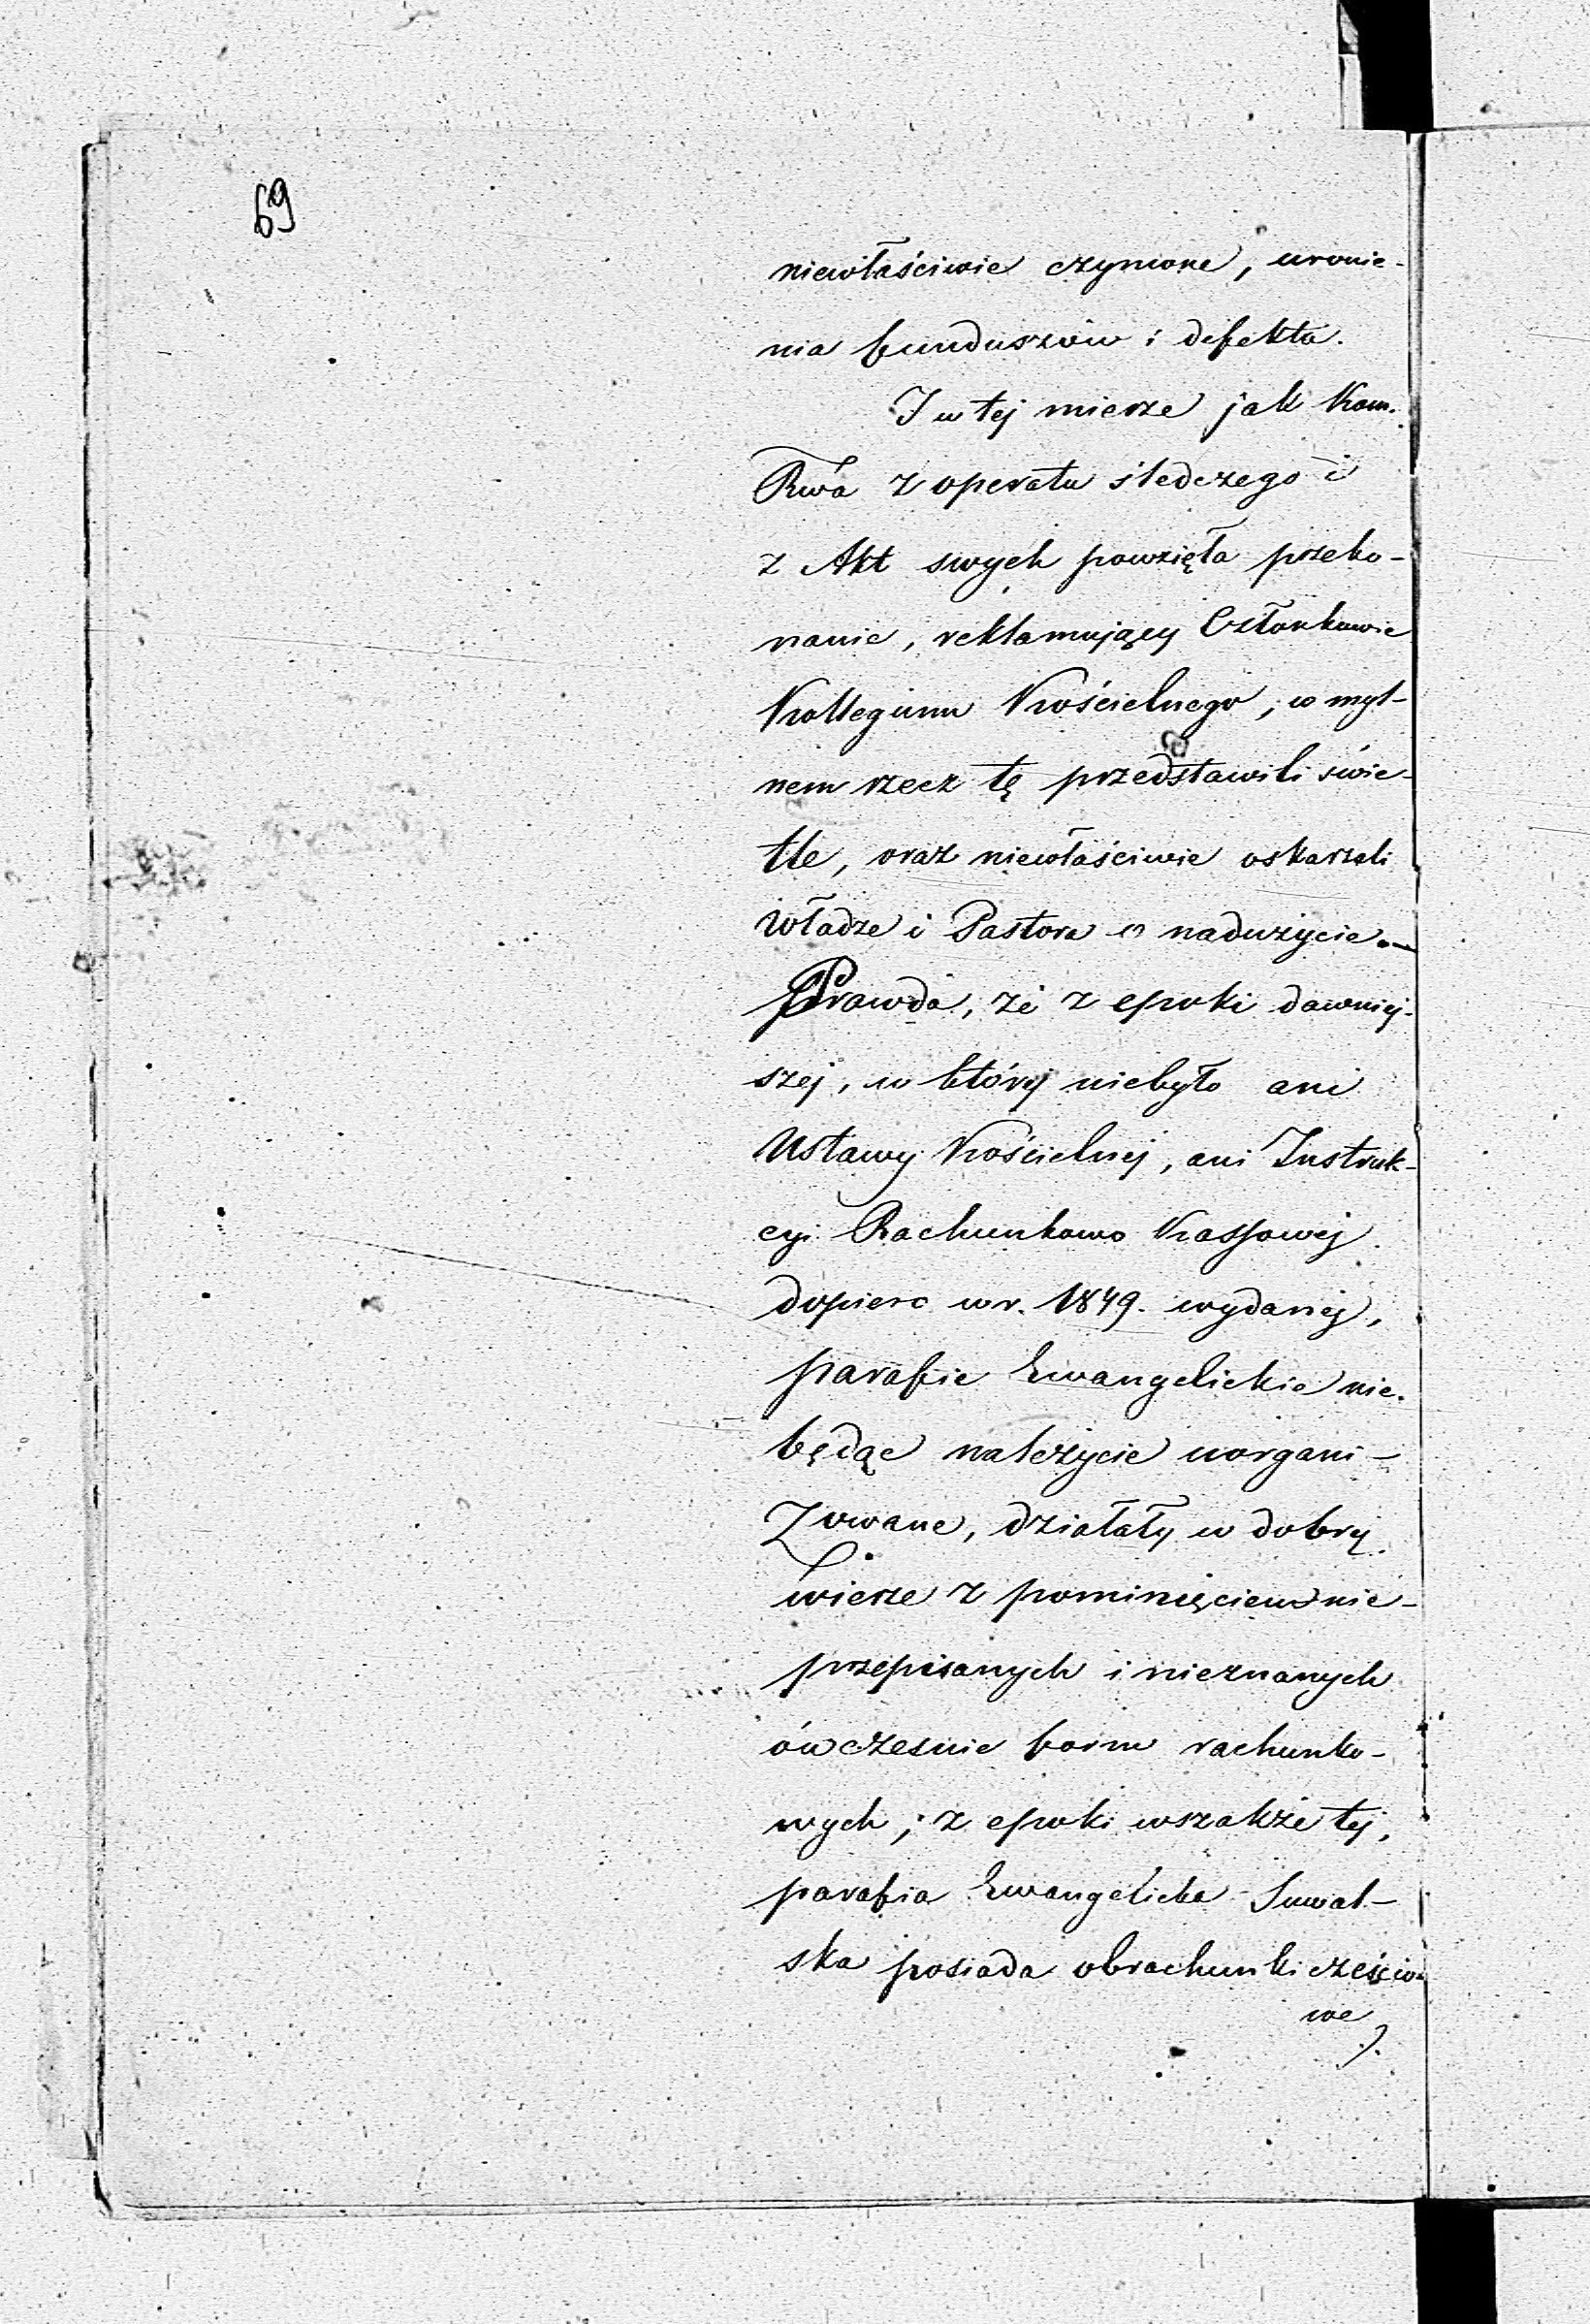 69
niewłaściwie czynione, uronie-
nia funduszów i defekta.
I w tej mierze jak Kom.
Rwa z operatu śledczego i
z Akt swych powzięła przeko-
nanie, reklamujący Członkowie
Kollegium Kościelnego, w myl-
nem rzecz tę przedstawili świe-
tle, oraz niewłaściwie oskarzali
Władze i Pastora o nadużycie.—
Prawda, że z epoki dawniej-
szej, w który niebyło ani
Ustawy Kościelnej, ani Instruk-
cyi Rachunkowo Kassowej
dopiero w r. 1849. wydanej,
parafie Ewangelickie nie-
będąc należycie uorgani-
zowane, działały w dobrej
wierze z pominięciem nie-
przepisanych i nieznanych
ówcześnie form rachunko-
wych; z epoki wszakże tej,
parafia Ewangelicka Suwal-
ska posiada obrachunki częścio-
we